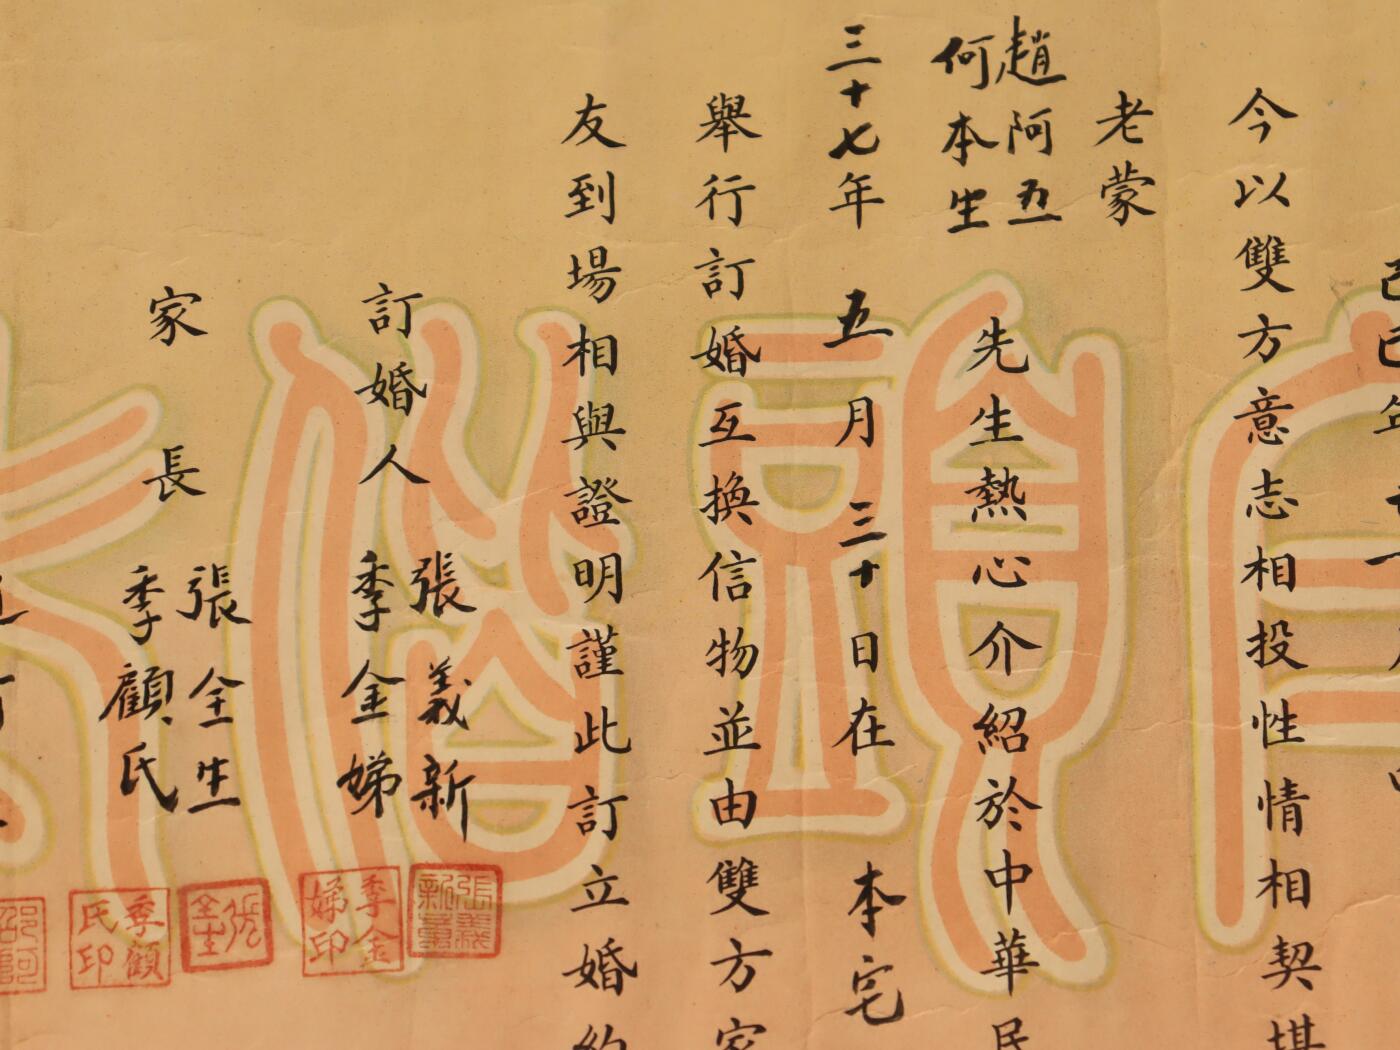 今以雙方意志相投性情相契堪
老蒙
趙阿五
何本生
先生熱心介紹於中華民
三十七年五月三十日在本宅
舉行訂婚互換信物並由雙方家
友到場相與證明謹此訂立婚約
訂婚人
張義新
季金娣
家長
張全生
季顧氏
張義新章
季金娣印
張全生
季顧氏印